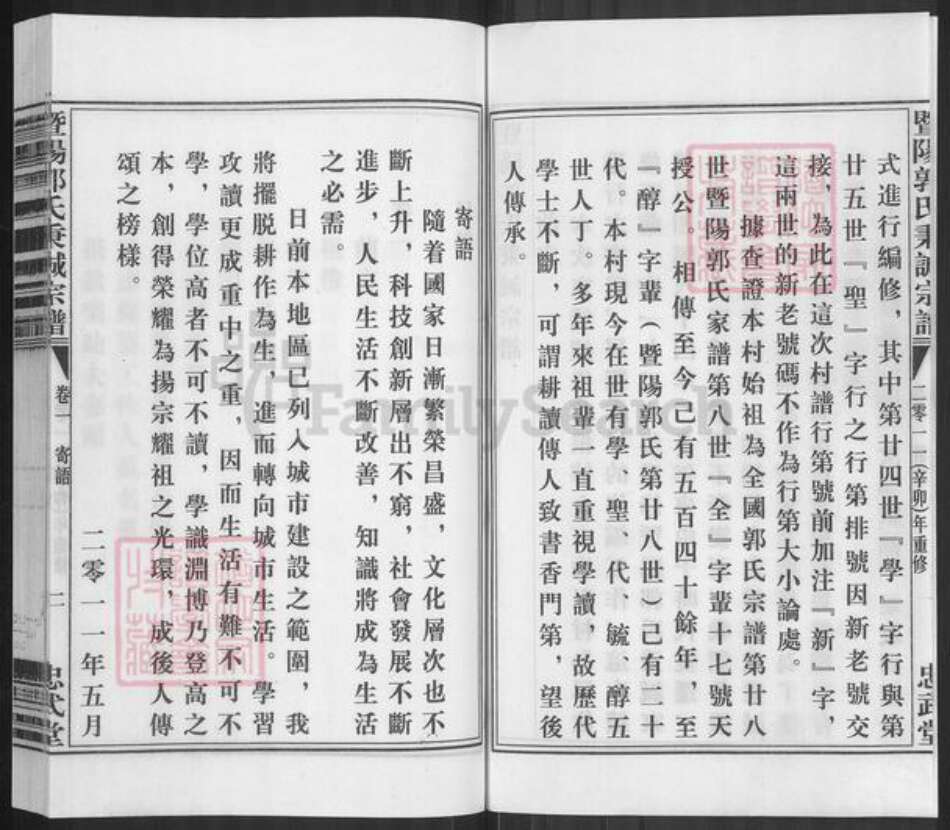 暨陽郭氏秉誠宗譜
二零一一(辛卯)年重修
忠武堂
式進行編修，其中第廿四世『學』字行與第
廿五世『聖』字行之行第排號因新老號交
接，為此在這次村譜行第號前加注『新』字，
這兩世的新老號碼不作為行第大小論處。
據查證本村始祖為全國郭氏宗譜第廿八
世暨陽郭氏家譜第八世『全』字輩十七號天
授公。相傳至今己有五百四十餘年，至
『醇』字輩（暨陽郭氏第廿八世）己有二十
代。本村現今在世有學、聖、代、毓、醇五
世人丁。多年來祖輩一直重視學讀，故歷代
學士不斷，可謂耕讀傳人致書香門第，望後
人傳承。
寄語
隨着國家日漸繁榮昌盛，文化層次也不
斷上升，科技創新層出不窮，社會發展不斷
進步，人民生活不斷改善，知識將成為生活
之必需。
日前本地區已列入城市建設之範圍，我
將擺脱耕作為生，進而轉向城市生活。學習
攻讀更成重中之重，因而生活有難不可不
學，學位高者不可不讀，學識淵博乃登高之
本，創得榮耀為揚宗耀祖之光環，成後人傳
頌之榜樣。
二零一一年五月
暨陽郭氏秉誠宗譜
卷二
寄語
二
忠武堂
FamilySearch